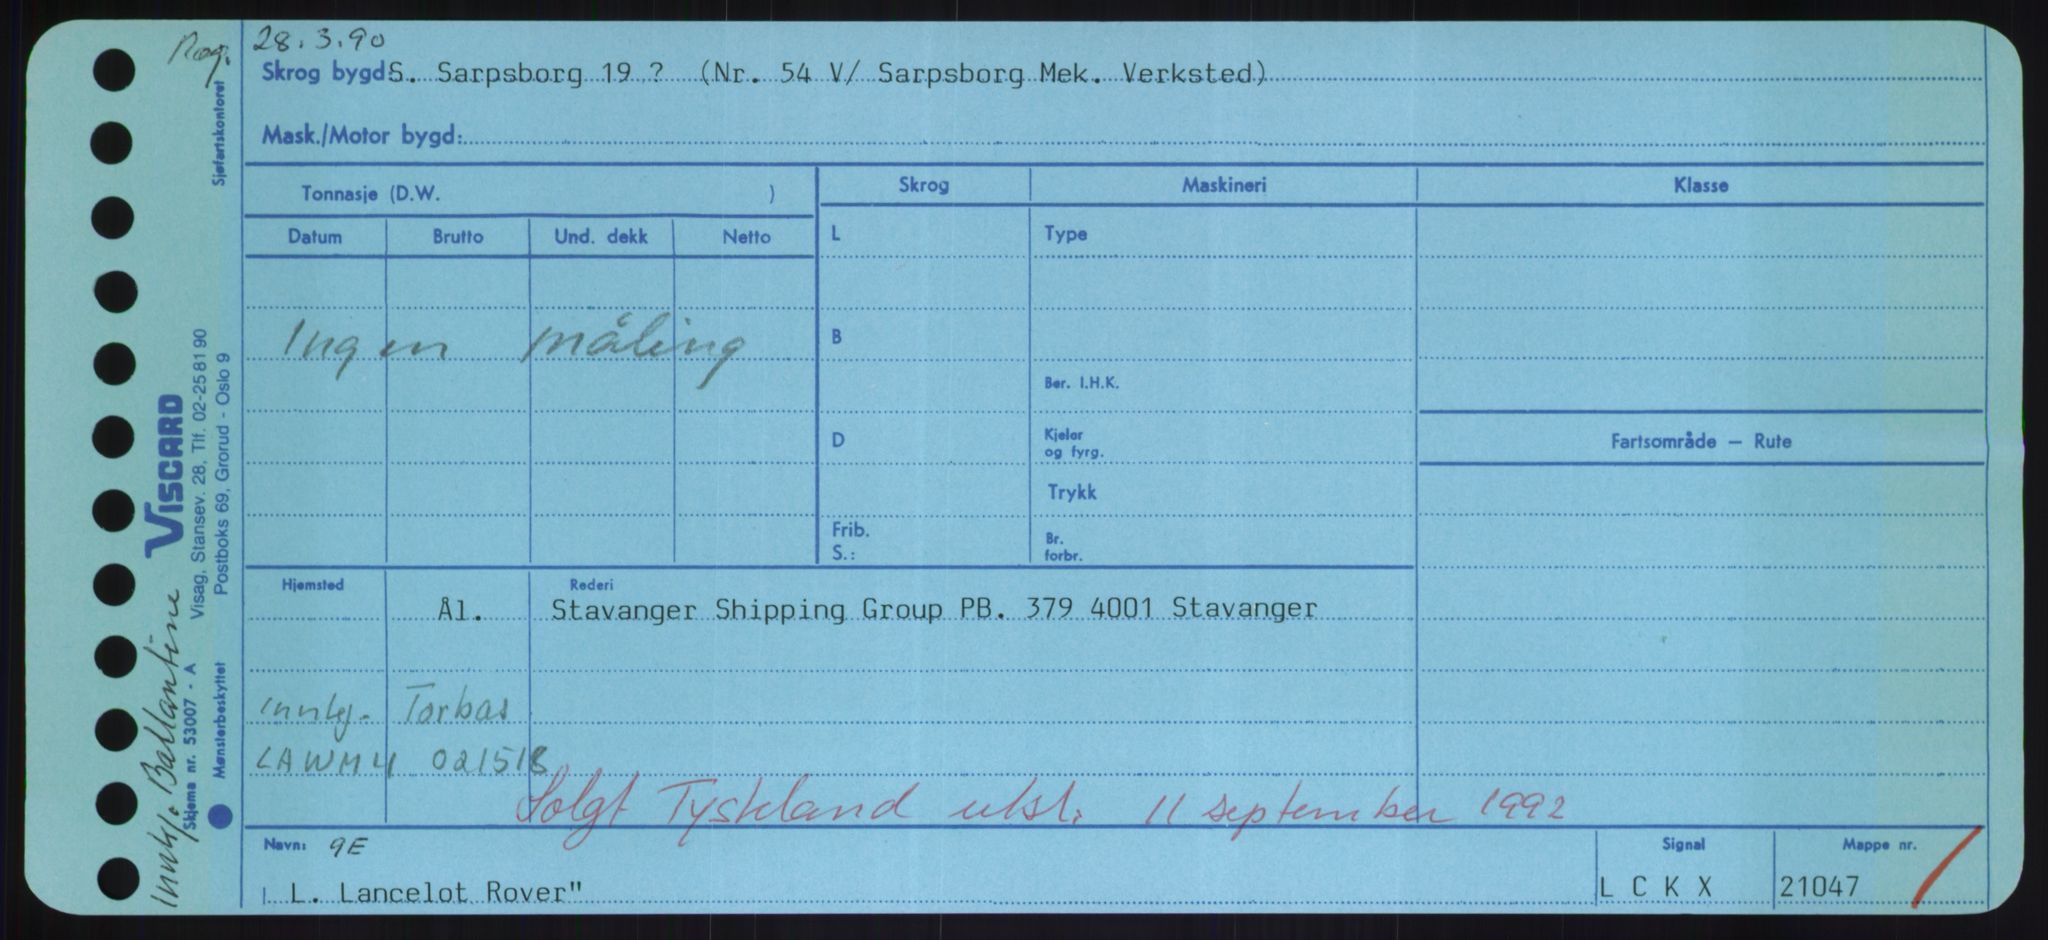 Reg. 28.3.90
Skrog bygd S. Sarpsborg 19 ? (Nr. 54 V/ Sarpsborg Mek. Verksted)
Mask./Motor bygd:
Tonnasje (D.W. )
Skrog Maskineri Klasse
Datum Brutto Und. dekk Netto
L Type
Ingen måling
B
Ber. I.H.K.
D Kjeler og fyrg.
Fartsområde — Rute
Trykk
Frib. S.: Br. forbr.
Hjemsted Rederi
Ål. Stavanger Shipping Group PB. 379 4001 Stavanger
Torbas
LAWM4 021518
Solgt Tyskland utsl. 11 september 1992
Navn: 9E Signal Mappe nr.
L. Lancelot Rover" L C K X 21047
Sjøfartskontoret
VISCARD
Visag, Stansev. 28, Tlf. 02-25 81 90
Postboks 69, Grorud - Oslo 9
Skjema nr. 53007 - A
Mønsterbeskyttet
Ballantine